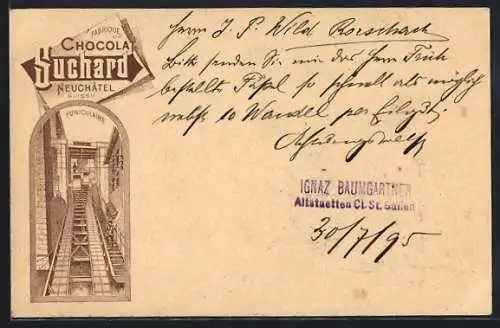 FABRIQUE
DE
CHOCOLAT
Suchard
NEUCHÂTEL
SUISSE
FUNICULAIRE
Herrn J. P. Wild Rorschach
Bitte senden Sie mir das Herrn
bestellte so schnell als möglich
nebst 10 per Eilgut
Achtungsvollst
IGNAZ BAUMGARTNER
Altstaetten Ct. St. Gallen
30/7/95